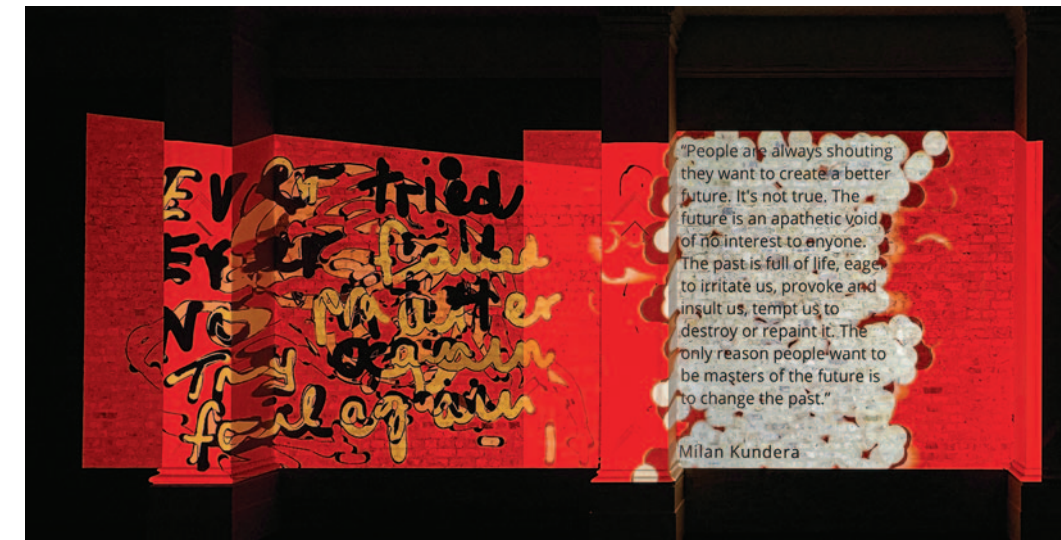 Ever tried
Ever failed
No matter
Try again
fail again
"People are always shouting
they want to create a better
future. It's not true. The
future is an apathetic void
of no interest to anyone.
The past is full of life, eager
to irritate us, provoke and
insult us, tempt us to
destroy or repaint it. The
only reason people want to
be masters of the future is
to change the past."
Milan Kundera